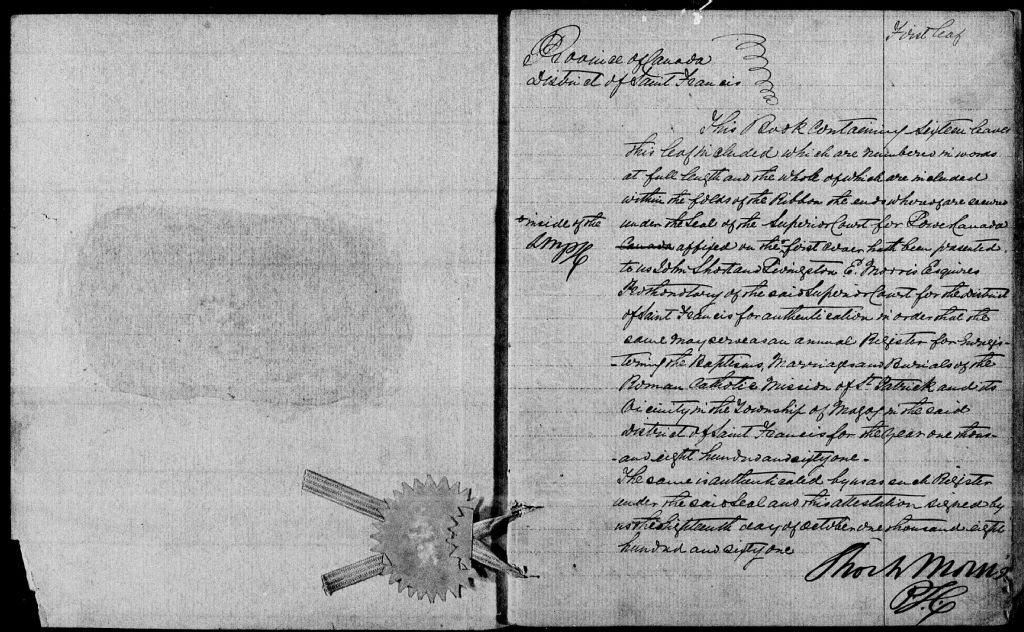 First leaf
Province of Canada
District of Saint Francis
This Book Containing Sixteen leaves
this leaf included which are numbered in words
at full length and the whole of which are included
within the folds of the Ribbon the ends whereof are secured
under the Seal of the Superior Court for Lower Canada
inside of the
Canada affixed on the first cover hath been presented
to us John Short and Livingston E. Morris Esquires
Prothonotary of the said Superior Court for the District
of Saint Francis for authentication in order that the
same may serve as an annual Register for Enregis-
-tering the Baptisms, Marriages and Burials of the
Roman Catholic Mission of St Patrick and its
Vicinity in the Township of Magog in the said
District of Saint Francis for the year one thous-
-and eight hundred and sixty one -
The same is authenticated by us as such Register
under the said Seal and this attestation signed by
us the Eighteenth day of October one thousand eight
hundred and sixty one
Short & Morris
P.S.C.